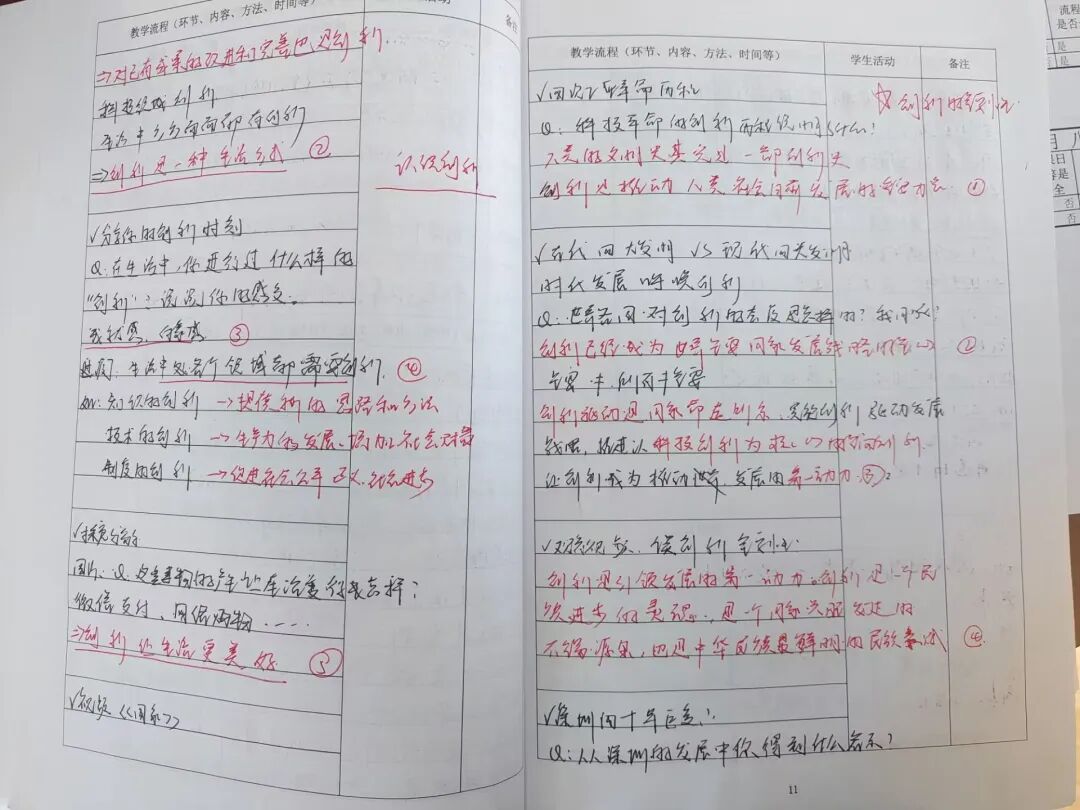 教学流程(环节、内容、方法、时间等)
备注
⇒对已有成果的改进和完善也是创新.
科技领域创新
生活中方方面面都有创新
⇒创新是一种生活方式 ②
认识创新
√分享你的创新时刻
Q:在生活中,你进行过什么样的
"创新":说说你的感受。
成就感、自豪感 ③
生活中处各个领域都需要创新. ④
如:知识的创新→提供新的思路和方法
技术的创新→生产力的发展、增加社会财富
制度的创新→促进社会公平正义、社会进步
√探究与分享
图片:Q:这些事物的产生让生活变得怎样:
微信支付、网络购物……
⇒创新让生活更美好 ⑤
√视频《国家》
教学流程(环节、内容、方法、时间等)
学生活动
备注
☆创新的重要性
Q:科技革命的创新历程说明什么?
人类的文明史其实是一部创新史
创新是推动人类社会向前发展的重要力量 ①
√古代四大发明 VS 现代四大发明
时代发展呼唤创新
Q:世界各国对创新的态度是怎样的?我国呢?
创新已经成为世界主要国家发展战略的重心 ②
创新驱动是国家命运所系,实施创新驱动发展
战略,推进以科技创新为核心的全面创新.
让创新成为推动发展的第一动力.③
创新是引领发展的第一动力。创新是一个民
族进步的灵魂,是一个国家兴旺发达的
不竭源泉,也是中华民族最鲜明的民族禀赋 ④
√深圳四十年巨变
Q:从深圳的发展中你得到什么启示?
11
流程
是否
是
是